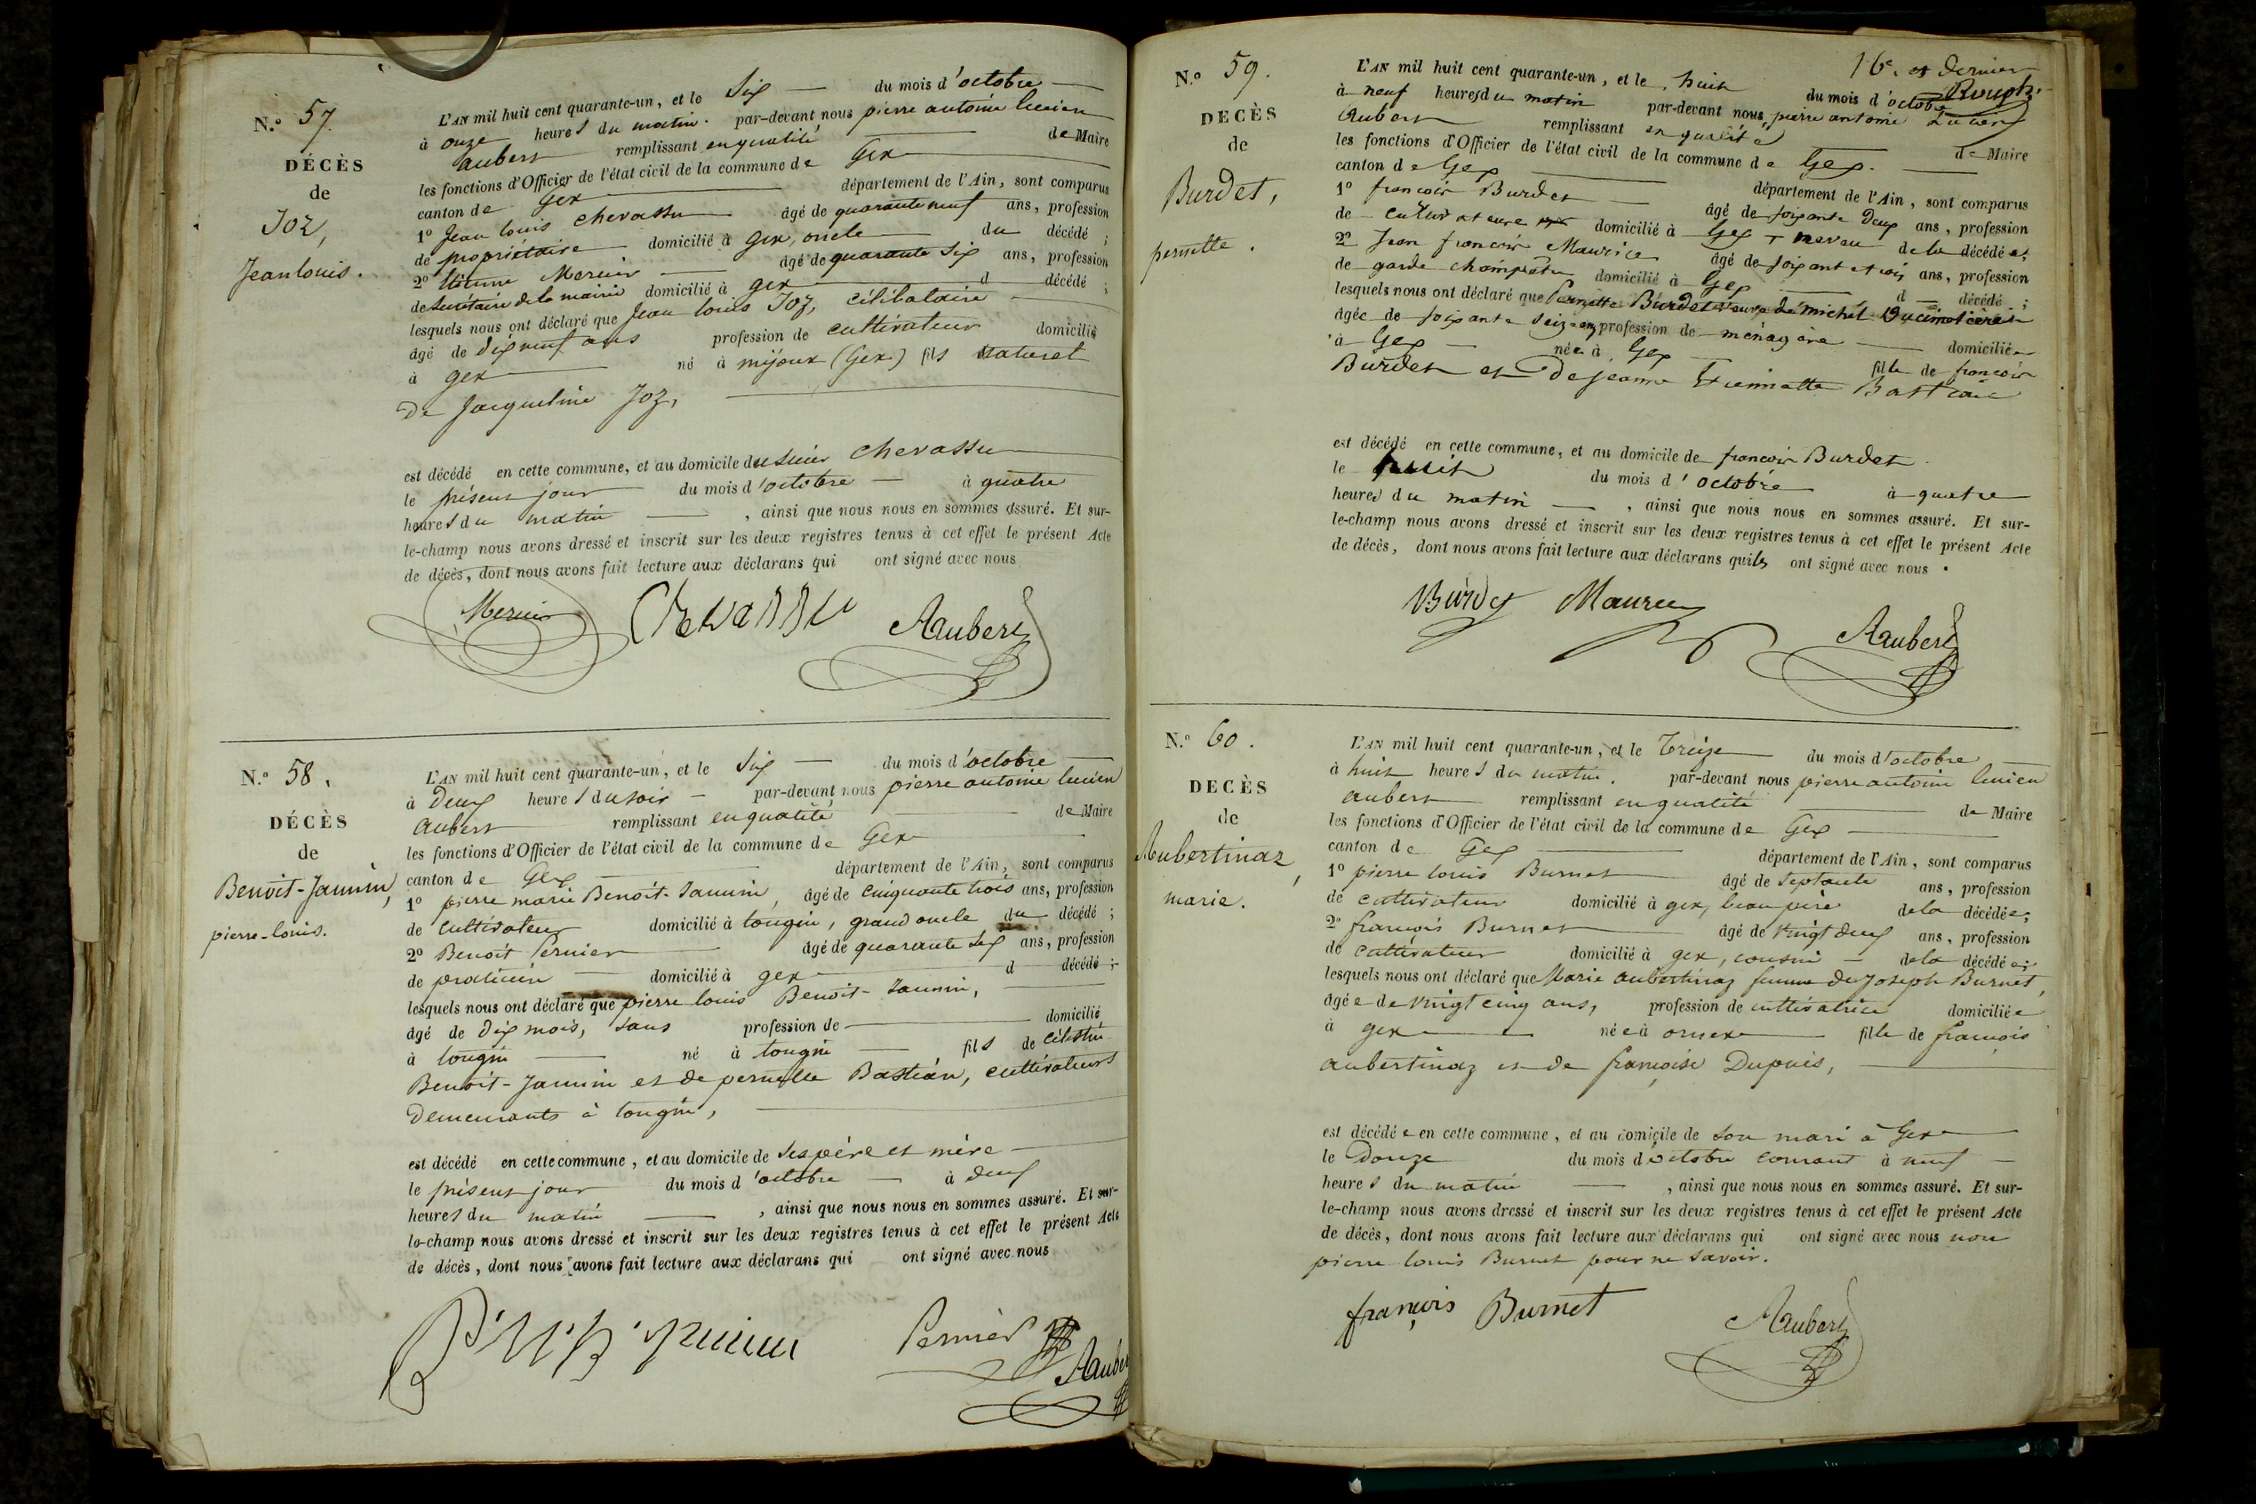 N.o 57.
DÉCÈS
de
Joz,
Jean louis.
L'AN mil huit cent quarante-un, et le Six du mois d'octobre
à onze heures du matin. par-devant nous pierre antoine lucien
aubert remplissant en qualité de Maire
les fonctions d'Officier de l'état civil de la commune de Gex
canton de Gex département de l'Ain, sont comparus
1o Jean louis chevassu âgé de quarante neuf ans, profession
de propriétaire domicilié à Gex, oncle du décédé;
2o Etienne Mercier âgé de quarante six ans, profession
de Secrétaire de la mairie domicilié à gex d décédé;
lesquels nous ont déclaré que Jean louis Joz, célibataire
âgé de dix neuf ans profession de cultivateur domicilié
à gex né à mijoux (Gex) fils naturel
De Jacqueline Joz,
est décédé en cette commune, et au domicile du sieur chevassu
le présent jour du mois d'octobre à quatre
heures du matin, ainsi que nous nous en sommes assuré. Et sur-
le-champ nous avons dressé et inscrit sur les deux registres tenus à cet effet le présent Acte
de décès, dont nous avons fait lecture aux déclarans qui ont signé avec nous
Mercier Chevassu Aaubert
N.o 58.
DÉCÈS
de
Benoit-Jannin,
pierre-louis.
L'AN mil huit cent quarante-un, et le Six du mois d'octobre
à Deux heures du soir par-devant nous pierre antoine lucien
aubert remplissant en qualité de Maire
les fonctions d'Officier de l'état civil de la commune de Gex
canton de Gex département de l'Ain, sont comparus
1o pierre marie Benoit-Jannin, âgé de cinquante trois ans, profession
de Cultivateur domicilié à tougin, grand oncle du décédé;
2o Benoit Pernier âgé de quarante six ans, profession
de praticien domicilié à gex d décédé;
lesquels nous ont déclaré que pierre louis Benoit-Jannin,
âgé de dix mois, sans profession de domicilié
à tougin né à tougin fils de célestin
Benoit-Jannin et de pernette Bastian, cultivateurs
demeurants à tougin,
est décédé en cette commune, et au domicile de ses père et mère
le présent jour du mois d'octobre à deux
heures du matin, ainsi que nous nous en sommes assuré. Et sur-
le-champ nous avons dressé et inscrit sur les deux registres tenus à cet effet le présent Acte
de décès, dont nous avons fait lecture aux déclarans qui ont signé avec nous
Pernier Aaubert
16e. et dernier
N.o 59.
DÉCÈS
de
Burdet,
pernette.
L'AN mil huit cent quarante-un, et le huit du mois d'octobre
à neuf heures du matin par-devant nous pierre antoine Lucien
Aubert remplissant en qualité de Maire
les fonctions d'Officier de l'état civil de la commune de Gex.
canton de Gex département de l'Ain, sont comparus
1o francois Burdet âgé de soixante Deux ans, profession
de cultivateur domicilié à Gex neveu de la décédée;
2o Jean francois Maurice âgé de soixante trois ans, profession
de garde champêtre domicilié à Gex d décédé;
lesquels nous ont déclaré que Pernette Burdet veuve de michel
âgée de soixante Seize ans profession de ménagère domiciliée
à Gex née à Gex fille de francois
Burdet et De jeanne Etiennette Bastian
est décédé en cette commune, et au domicile de francois Burdet
le huit du mois d'octobre à quatre
heures du matin, ainsi que nous nous en sommes assuré. Et sur-
le-champ nous avons dressé et inscrit sur les deux registres tenus à cet effet le présent Acte
de décès, dont nous avons fait lecture aux déclarans qu'ils ont signé avec nous.
Burdet Maurice Aaubert
N.o 60.
DÉCÈS
de
Aubertinaz,
marie.
L'AN mil huit cent quarante-un, et le Treize du mois d'octobre
à huit heures du matin. par-devant nous pierre antoine lucien
aubert remplissant en qualité de Maire
les fonctions d'Officier de l'état civil de la commune de Gex
canton de Gex département de l'Ain, sont comparus
1o pierre louis Burnet âgé de septante ans, profession
de cultivateur domicilié à gex, beau père de la décédée;
2o françois Burnet âgé de vingt deux ans, profession
de cultivateur domicilié à gex, cousin de la décédée;
lesquels nous ont déclaré que Marie aubertinaz femme de Joseph Burnet,
âgée de vingt cinq ans, profession de cultivatrice domiciliée
à gex née à ornex fille de françois
aubertinaz et de françoise Dupuis,
est décédée en cette commune, et au domicile de son mari à Gex
le Douze du mois d'octobre courant à neuf
heures du matin, ainsi que nous nous en sommes assuré. Et sur-
le-champ nous avons dressé et inscrit sur les deux registres tenus à cet effet le présent Acte
de décès, dont nous avons fait lecture aux déclarans qui ont signé avec nous non
pierre louis Burnet pour ne savoir.
françois Burnet Aaubert